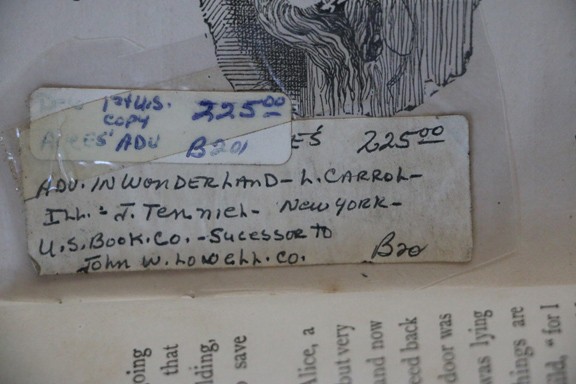 1st U.S. 225.00
COPY
ALICES' ADV B201
ES' 225.00
ADV. IN WONDERLAND - L. CARROL -
ILL. - J. TENNIEL - NEW YORK -
U.S. BOOK. CO. - SUCESSOR TO
JOHN W. LOWELL. CO. B20
going
that
save
Alice, a
but very
and now
back
door was
was lying
things are
"for I